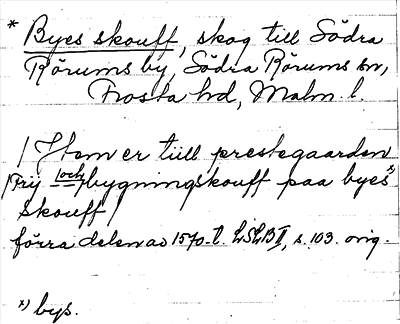 * Byes skouff, skog till Södra
Rörums by, Södra Rörums sn,
Frosta hd, Malm. l.
/ Item er tiill prestegaarden
/ Frij och bygningskouff paa byes x)
Skouff /
förra delen av 1570-t. LSLB II, s. 103. orig.
x) bys.